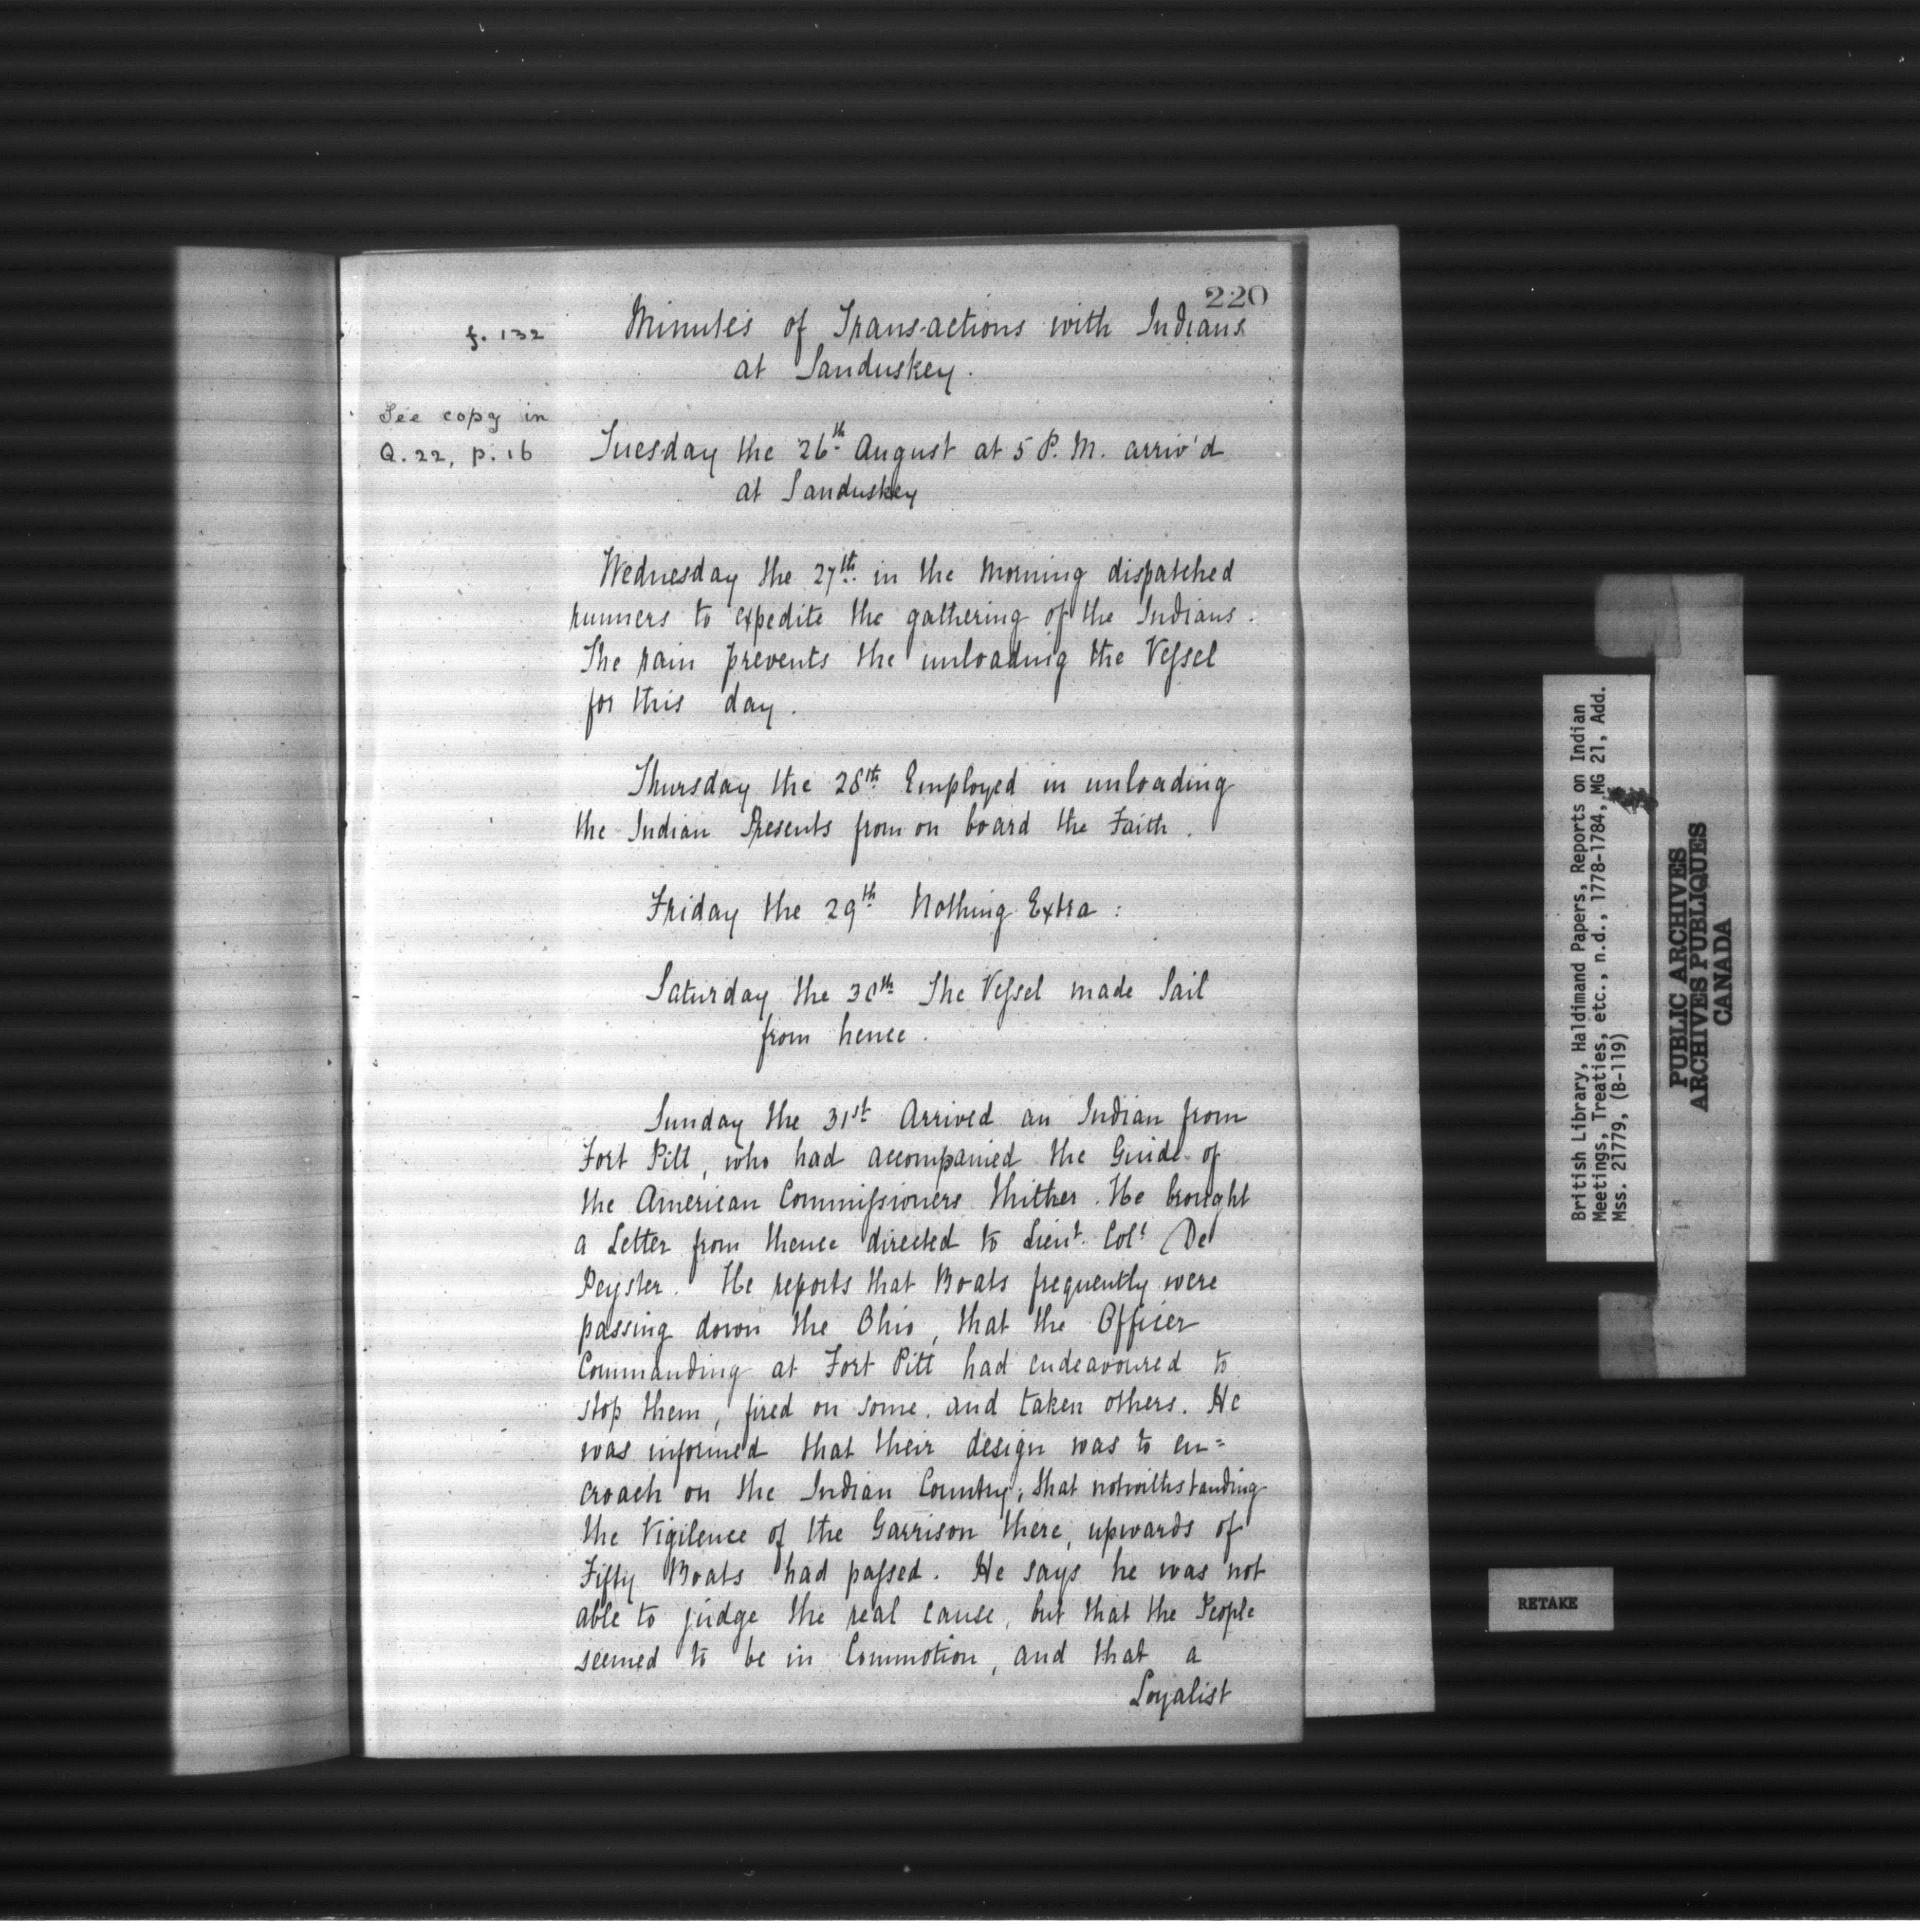 220
f. 132
Minutes of Transactions with Indians
at Sanduskey.
See copy in
Q. 22, p. 16
Tuesday the 26th August at 5 P. M. arriv'd
at Sanduskey
Wednesday the 27th in the Morning dispatched
runners to expedite the gathering of the Indians.
The rain prevents the unloading the Vessel
for this day.
Thursday the 28th Employed in unloading
the Indian Presents from on board the Faith.
Friday the 29th Nothing Extra:
Saturday the 30th The Vessel made Sail
from hence.
Sunday the 31st Arrived an Indian from
Fort Pitt, who had accompanied the Guide of
the American Commissioners thither. He brought
a Letter from thence directed to Lieut. Col! De
Peyster. He reports that Boats frequently were
passing down the Ohio, that the Officer
Commanding at Fort Pitt had endeavoured to
stop them, fired on some, and taken others. He
was informed that their design was to en=
croach on the Indian Country, that notwithstanding
the Vigilence of the Garrison there, upwards of
Fifty Boats had passed. He says he was not
able to judge the real cause, but that the People
seemed to be in Commotion, and that a
Loyalist
British Library, Haldimand Papers, Reports on Indian
Meetings, Treaties, etc., n.d., 1778-1784, MG 21, Add.
Mss. 21779, (B-119)
PUBLIC ARCHIVES
ARCHIVES PUBLIQUES
CANADA
RETAKE